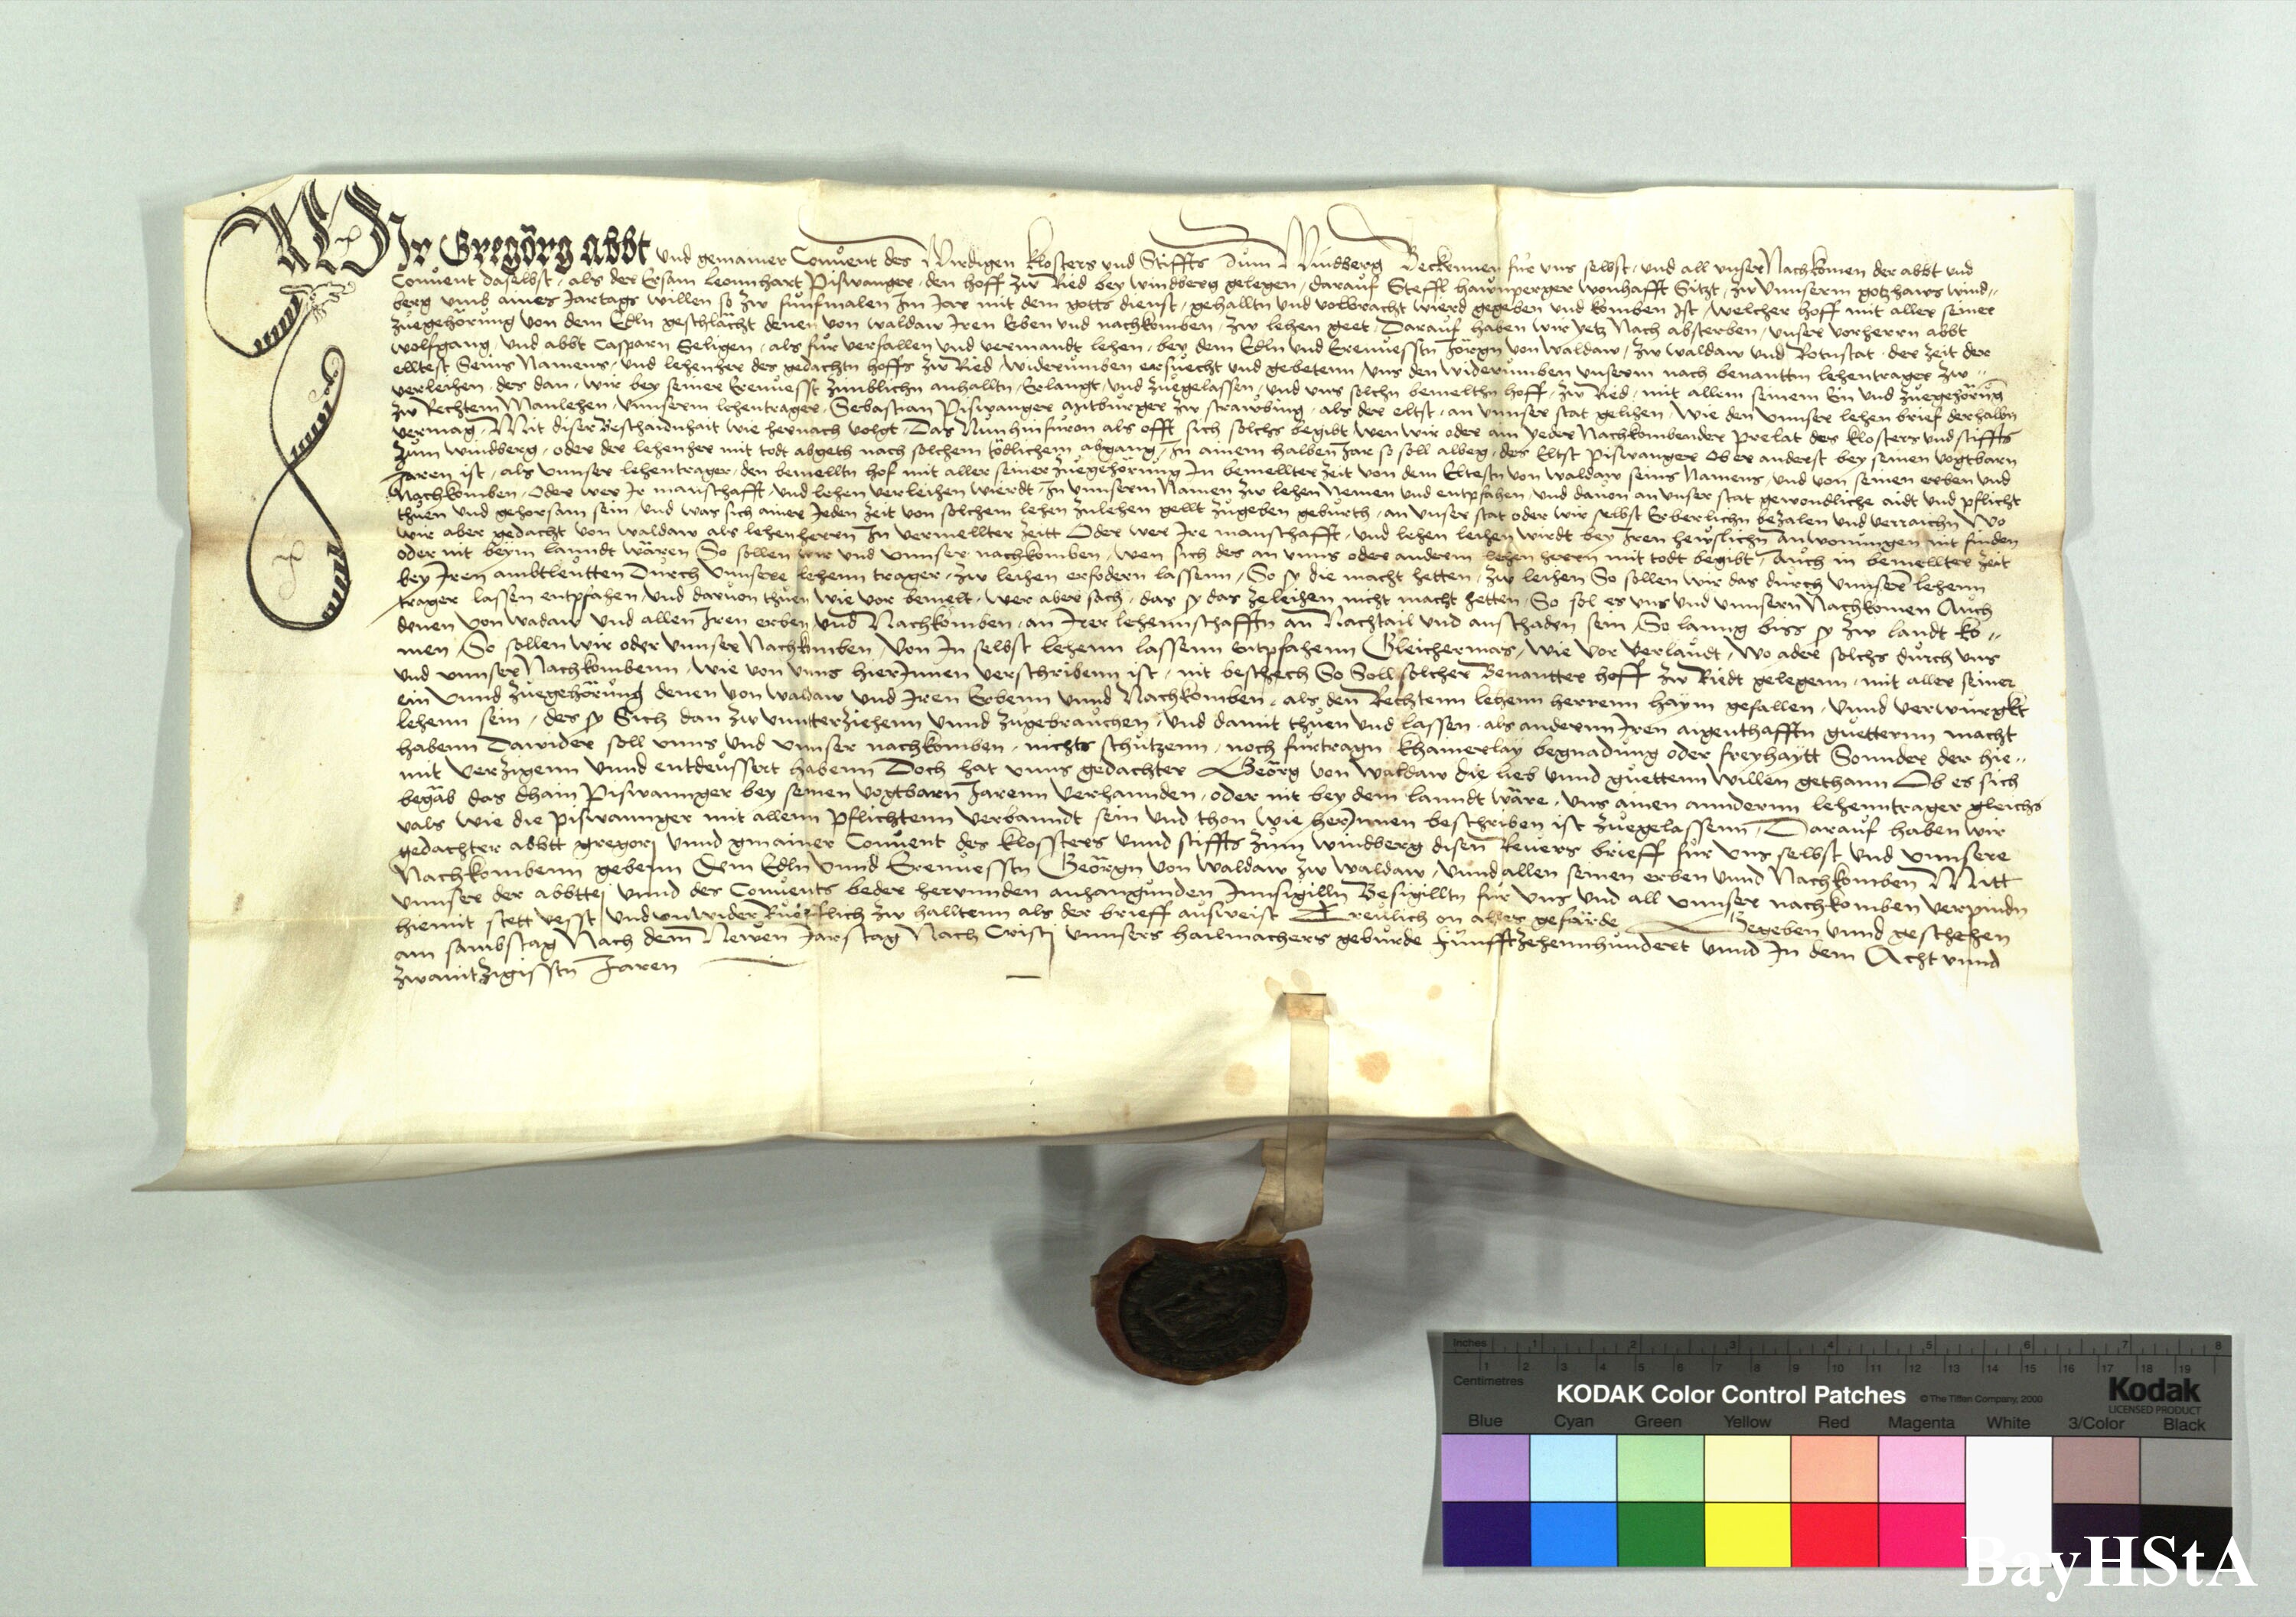 Wir Gregörg abbt und gemainer Conuent des Wirdigen klosters und Stiffts Zum Windberg Beckennen für uns selbst, und all unser Nachkomen der abbt und
Conuent daselbst, als der Ersam leonnhart Piswanger, den hoff zw Ried bey windberg gelegen, darauf Steffl hawnperger wonhafft Sitzt, zw unnserm gotzhaws wind-
berg umb aines Jartags willen so zw funfmalen Im Jar mit dem gotts dienst, gehalltn und volbracht wierd gegeben und komben ist, welcher hoff mit aller seiner
zuegehörung von dem Edln geschlächt denen von waldaw Iren Erben und nachkomben, zw lehen geet, Darauf haben wir yetz Nach absterben, unser vorherrn abbt
wolfgang, und abbt Casparn Seligen, als fur verfallen und vermandt lehen, bey dem Edln und Erenuesstn Jörgn von waldaw, zw waldaw und Rotnstat, der zeit der
elltest Seins Namens, und lehenher des gedachtn hoffs zw Ried, widerumben ersuecht und gebetenn, uns den widerumben unserm nach benanttn lehentrager zw
verleihen, des dan, wir bey seiner Erenuesst zimblichn anhalltn, Erlangt, und zuegelassen, und uns solchn bemelthn hoff, zw Ried, mit allem seinem Ein und zuegehörung
zw Rechtem Manlehen, unnserm lehentrager, Sebastian Piswanger mitburger zw strawbing, als der eltst, an unnser stat gelihen, wie den unnser lehen brief derhalbn
vermag, Mit diser Beschaidnhait wie hernach volgt Das Nunhinfuron als offt sich solchs begibt wen wir oder ain yeder Nachkombender Prelat des klosters und stiffts
zum windberg, oder der lehenher mit todt abgeth nach solchem tödlichem abgang, In ainem halben Jar so soll albeg, der Eltst Piswanger Ob er anderst bey seinen vogtbarn
Jaren ist, als unnser lehentrager, den bemelltn hof mit aller seiner zuegehörung In bemellter zeit von dem Eltestn von waldaw seins Namens, und von seinen erben und
Nachkomben, Oder wer Ir manschafft, und lehen verleihen wierdt, In unnserm Namen zw lehen Nemen und entpfahen, und dauon an unser stat gewondliche aidt und pflicht
thuen und gehorsam sein, und was sich ainer Jeden zeit von solchem lehen zulehen gellt zugeben geburth, an unser stat oder wir selbst Erberlichn bezalen und verraichn Wo
wir aber gedacht von waldaw als lehenherrn In vermellter zeitt Oder wer Ire manschafft, und lehen leihen wirdt bey Iren hewslichn anwonungen nit finden
oder nit beym lanndt wären So sollen wir und unnser nachkomben, wen sich des an unns oder anderm lehen herrn mit todt begibt, Auch in bemellter zeit
bey Iren ambtleutten Durch unnsere lehenn trager, zw leihen erfodern lassenn, So sy die macht hetten, zw leihen So sollen wir das durch unnsere lehenn
trager lassen entpfahen, und daruon thuen wie vor bemelt, wer aber sach, das sy das zeleihen nicht macht hetten, So sol es uns und unnsern Nachkomen Auch
denen von wadaw und allen Iren erben und Nachkomben, an Irer lehennschafftn an Nachtail und anschaden sein, So lanng biss sy zw landt ko-
men, So sollen wir oder unnser Nachkomben, von In selbst lehenn lassenn entpfahenn Gleichermas, wie vor verlaudt, wo ader solchs durch uns
und unnser Nachkombenn, wie von unns hierInnen verschribenn ist, nit beschech So Soll solcher Benantter hoff zw Riedt gelegenn, mit aller seiner
ein unnd zuegehörung denen von waldaw und Iren Erbenn unnd Nachkomben, als den Rechtenn lehenn herrenn haym gefallen, unnd verwurgkt
lehenn sein, des sy Sich dan zw unntterziehenn unnd zugebrauchen, und damit thuen und lassen, als andernn Iren aigenthafftn guetternn macht
habenn Dawider soll unns und unnser nachkomben, nichts schutzenn, noch furtragn khamerlay begnadung oder freyhaytt Sonnder der hie-
mit verzigenn unnd entdeussert habenn Doch hat unns gedachter Georg von waldaw die lieb unnd guettenn willen gethann Ob es sich
begäb das dhain Piswannger bey seinen vogtbarn Jarenn verhannden, oder nit bey dem lanndt wäre, uns ainen anndernn lehenntrager gleichs
vals wie die piswannger mit allenn pflichtenn verbanndt sein und thon wie herInnen beschriben ist zuegelassenn, Darauf haben wir
gedachter abbtt gregorj unnd gmainer Conuent des klossters unnd stiffts zum windberg disen Reuers brieff fur uns selbst und unnsere
Nachkombenn gebenn Dem Edln unnd Erenuesstn Geörgn von waldaw zw waldaw, unnd allen seinen erben unnd Nachkomben Mitt
unnser der abbttej unnd des Conuents beder herunnden anhangunden Innsigilln Besigilltn fur uns und all unnser nachkomben verpindn
hiemit stett vesst und unwider Rueflich zw halltenn als der brieff ausweist Treulich on alles gefärde Gegeben unnd geschehen
am sambstag Nach dem Newen Jarstag Nach Cristj unnsers hailmachers geburde Funfftzehennhundert unnd In dem Acht unnd
zwaintzigisstn Jaren
Inches 1 2 3 4 5 6 7 8
1 2 3 4 5 6 7 8 9 10 11 12 13 14 15 16 17 18 19
Centimetres
KODAK Color Control Patches © The Tiffen Company, 2000 Kodak
LICENSED PRODUCT
Blue Cyan Green Yellow Red Magenta White 3/Color Black
BayHStA